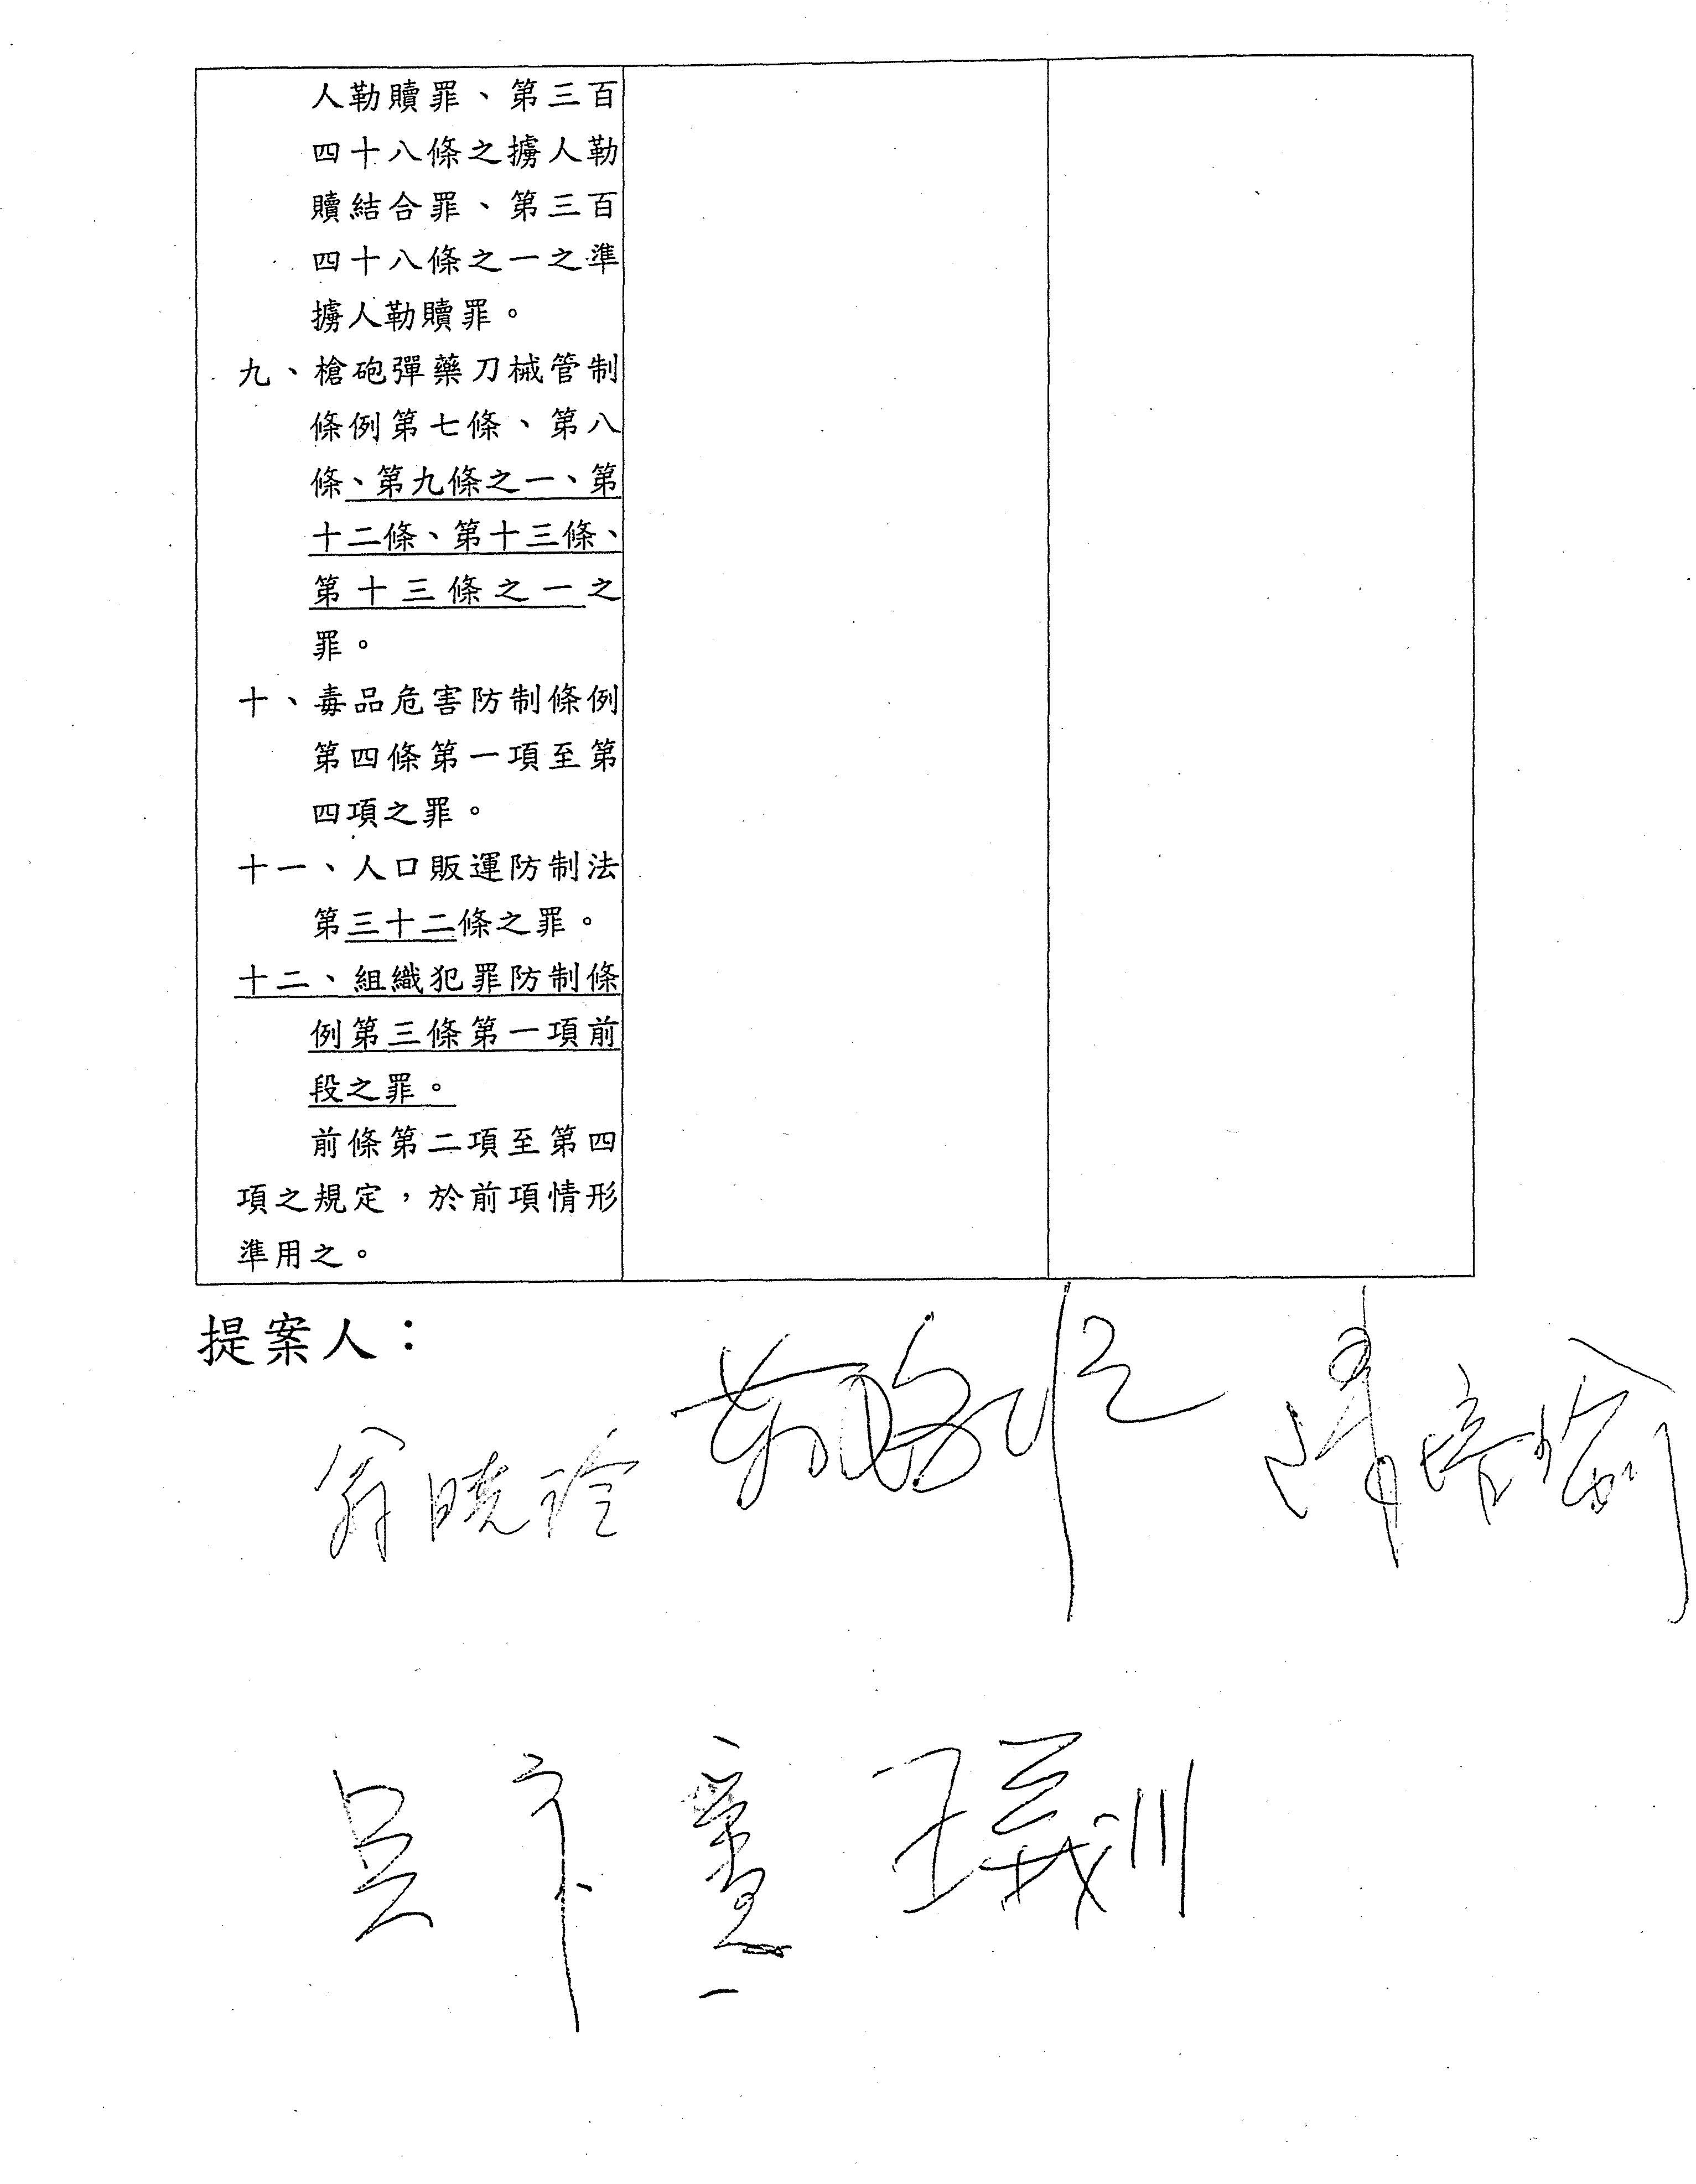 人勒贖罪、第三百
四十八條之擄人勒
贖結合罪、第三百
四十八條之一之準
擄人勒贖罪。
九、槍砲彈藥刀械管制
條例第七條、第八
條、第九條之一、第
十二條、第十三條、
第十三條之一之
罪。
十、毒品危害防制條例
第四條第一項至第
四項之罪。
十一、人口販運防制法
第三十二條之罪。
十二、組織犯罪防制條
例第三條第一項前
段之罪。
前條第二項至第四
項之規定，於前項情形
準用之。
提案人：
翁曉玲